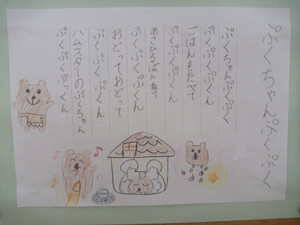 ぷくちゃんぷくぷく
ぷくちゃんぷくぷく
ぷくぷくぷくん
ごはんをたべて
ぷくぷくぷくん
おひるねして
ぷくぷくぷくん
おどっておどって
ぷくぷくぷくん
ハムスターのぷくちゃん
ぷくぷくぷっくん